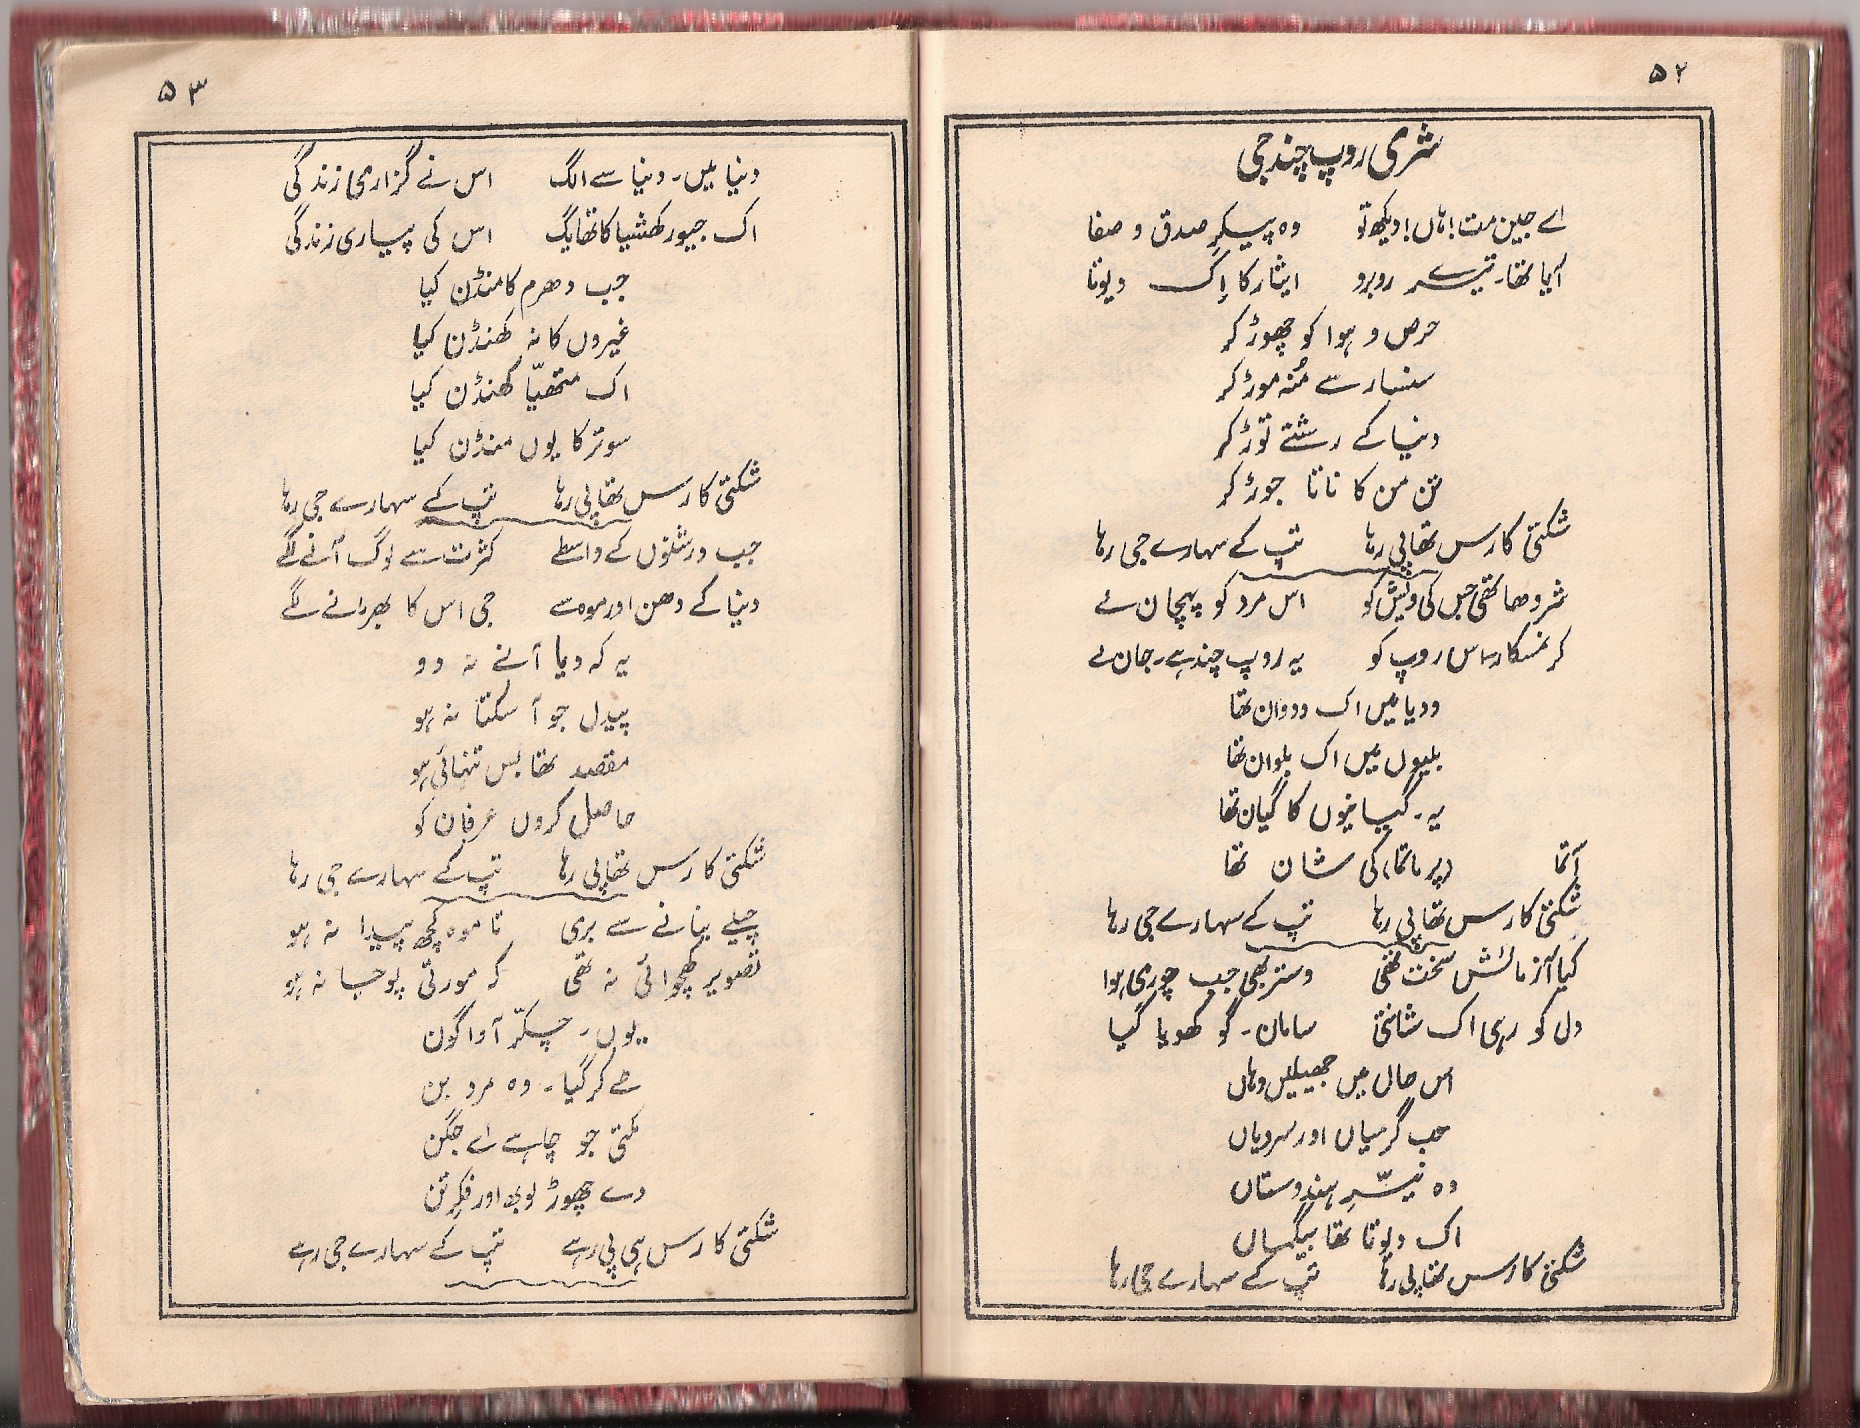 ۵۲
شری روپ چند جی
اے جین مت! ہاں! دیکھ تو وہ پیکرِ صدق و صفا
آیا تھا۔ تیرے روبرو ایثار کا اِک دیوتا
حرص و ہوا کو چھوڑ کر
سنسار سے مُنہ موڑ کر
دنیا کے رشتے توڑ کر
تن من کا ناتا جوڑ کر
شکتی کا رس تھا پی رہا تپ کے سہارے جی رہا
شردھا تھی جس کی ویش کو اس مرد کو پہچان لے
کر نمسکار اس روپ کو یہ روپ چند ہے۔ جان لے
ودیا میں اک ودوان تھا
بلیوں میں اک بلوان تھا
یہ۔ گیانیوں کا گیان تھا
آتما (پرماتما) کی شان تھا
شکتی کا رس تھا پی رہا تپ کے سہارے جی رہا
کیا آزمائش سخت تھی وستر بھی جب چوری ہوا
دل کو رہی اک شانتی سامان۔ گو کھویا گیا
اس حال میں جھیلیں وہاں
جب گرمیاں اور سردیاں
وہ نیّرِ ہندوستاں
اک دیوتا تھا بیگماں
شکتی کا رس تھا پی رہا تپ کے سہارے جی رہا
۵۳
دنیا میں۔ دنیا سے الگ اس نے گزاری زندگی
اک جیو رکھشیا کا تھا یگ اس کی پیاری زندگی
جب دھرم کا منڈن کیا
غیروں کا نہ کھنڈن کیا
اک متھیّا کھنڈن کیا
سوتر کا یوں منڈن کیا
شکتی کا رس تھا پی رہا تپ کے سہارے جی رہا
جب درشنوں کے واسطے کثرت سے لوگ آنے لگے
دنیا کے دھن اور موہ سے جی اس کا بھر مانے لگے
یہ کہ دیا آنے نہ دو
پیدل جو آ سکتا نہ ہو
مقصد تھا بس تنہائی ہو
حاصل کروں عرفان کو
شکتی کا رس تھا پی رہا تپ کے سہارے جی رہا
چیلے بنانے سے بری تا موہ کچھ پیدا نہ ہو
تصویر کھچوائی نہ تھی کہ مورتی پوجا نہ ہو
یوں۔ چکّر آواگون
طے کر گیا۔ وہ مرد بن
مکتی جو چاہے اے جگن
دے چھوڑ لوبھ اور فکرِ تن
شکتی کا رس ہی پی رہے تپ کے سہارے جی رہے